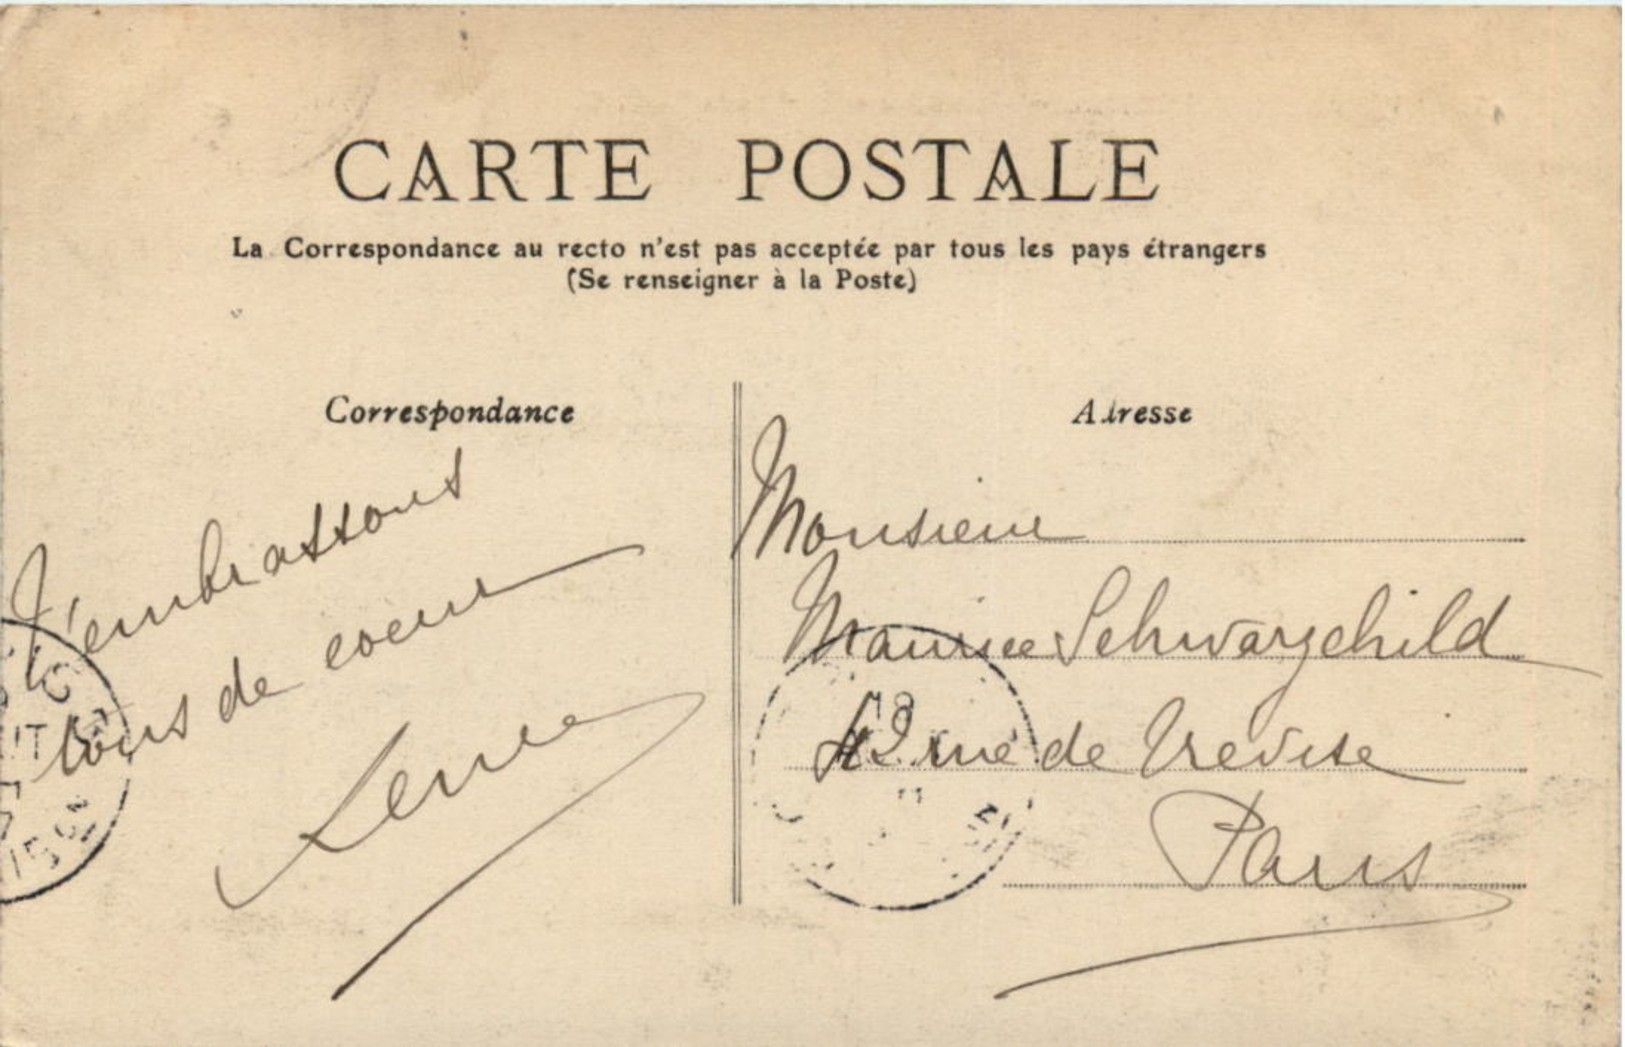 CARTE POSTALE
La Correspondance au recto n'est pas acceptée par tous les pays étrangers
(Se renseigner à la Poste)
Correspondance
T'embrassons
tous de coeur
Adresse
Monsieur
Maurice Schwarzchild
42 rue de Trevise
Paris